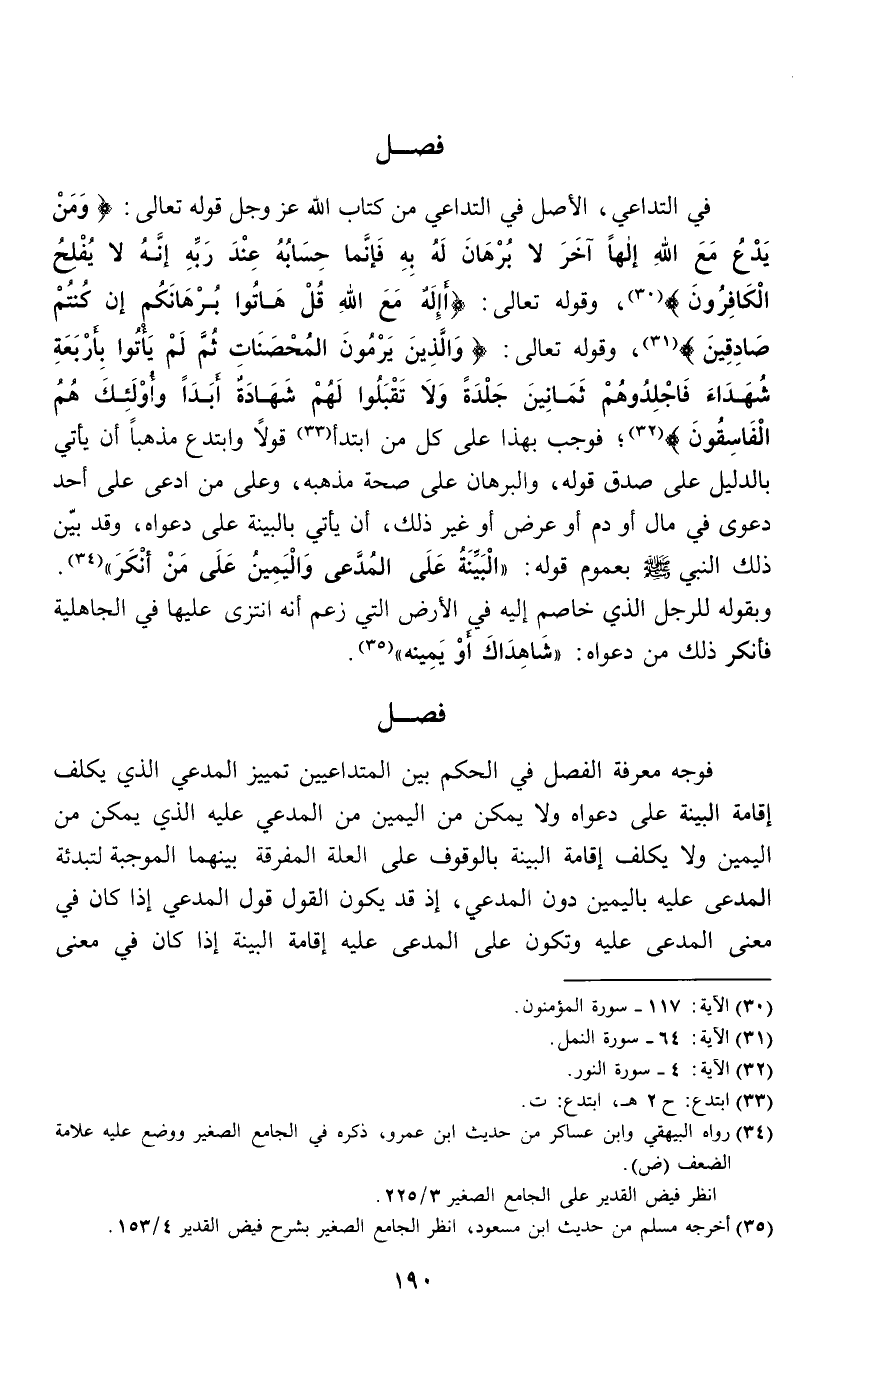 فصــل
في التداعي، الأصل في التداعي من كتاب الله عز وجل قوله تعالى: ﴿ وَمَنْ
يَدْعُ مَعَ اللهِ إلٰهاً آخَرَ لا بُرْهَانَ لَهُ بِهِ فَإنَّما حِسَابُهُ عِنْدَ رَبِّهِ إنَّـهُ لا يُفْلِحُ
الْكَافِرُونَ ﴾(٣٠)، وقوله تعالى: ﴿أَإلَهٌ مَعَ اللهِ قُلْ هَـاتُوا بُـرْهَانَكُم إن كُنتُمْ
صَادِقِينَ ﴾(٣١)، وقوله تعالى: ﴿ وَالَّذِينَ يَرْمُونَ المُحْصَنَاتِ ثُمَّ لَمْ يَأْتُوا بِأَرْبَعَةِ
شُهَـدَاءَ فَاجْلِدُوهُمْ ثَمَـانِينَ جَلْدَةً وَلَا تَقْبَلُوا لَهُمْ شَهَـادَةً أَبَـدَاً وأُوْلَئِـكَ هُمُ
الْفَاسِقُونَ ﴾(٣٢)؛ فوجب بهذا على كل من ابتدأ(٣٣) قولاً وابتدع مذهباً أن يأتي
بالدليل على صدق قوله، والبرهان على صحة مذهبه، وعلى من ادعى على أحد
دعوى في مال أو دم أو عرض أو غير ذلك، أن يأتي بالبينة على دعواه، وقد بيّن
ذلك النبي ﷺ بعموم قوله: «الْبَيِّنَةُ عَلَى المُدَّعى وَالْيَمِينُ عَلَى مَنْ أنْكَرَ»(٣٤).
وبقوله للرجل الذي خاصم إليه في الأرض التي زعم أنه انتزى عليها في الجاهلية
فأنكر ذلك من دعواه: «شَاهِدَاكَ أَوْ يَمِينه»(٣٥).
فصــل
فوجه معرفة الفصل في الحكم بين المتداعيين تمييز المدعي الذي يكلف
إقامة البينة على دعواه ولا يمكن من اليمين من المدعي عليه الذي يمكن من
اليمين ولا يكلف إقامة البينة بالوقوف على العلة المفرقة بينهما الموجبة لتبدئة
المدعى عليه باليمين دون المدعي، إذ قد يكون القول قول المدعي إذا كان في
معنى المدعى عليه وتكون على المدعى عليه إقامة البينة إذا كان في معنى
(٣٠) الآية: ١١٧ ـ سورة المؤمنون.
(٣١) الآية: ٦٤ ـ سورة النمل.
(٣٢) الآية: ٤ ـ سورة النور.
(٣٣) ابتدع: ح ٢ هـ، ابتدع: ت.
(٣٤) رواه البيهقي وابن عساكر من حديث ابن عمرو، ذكره في الجامع الصغير ووضع عليه علامة
الضعف (ض).
انظر فيض القدير على الجامع الصغير ٢٢٥/٣.
(٣٥) أخرجه مسلم من حديث ابن مسعود، انظر الجامع الصغير بشرح فيض القدير ١٥٣/٤.
١٩٠